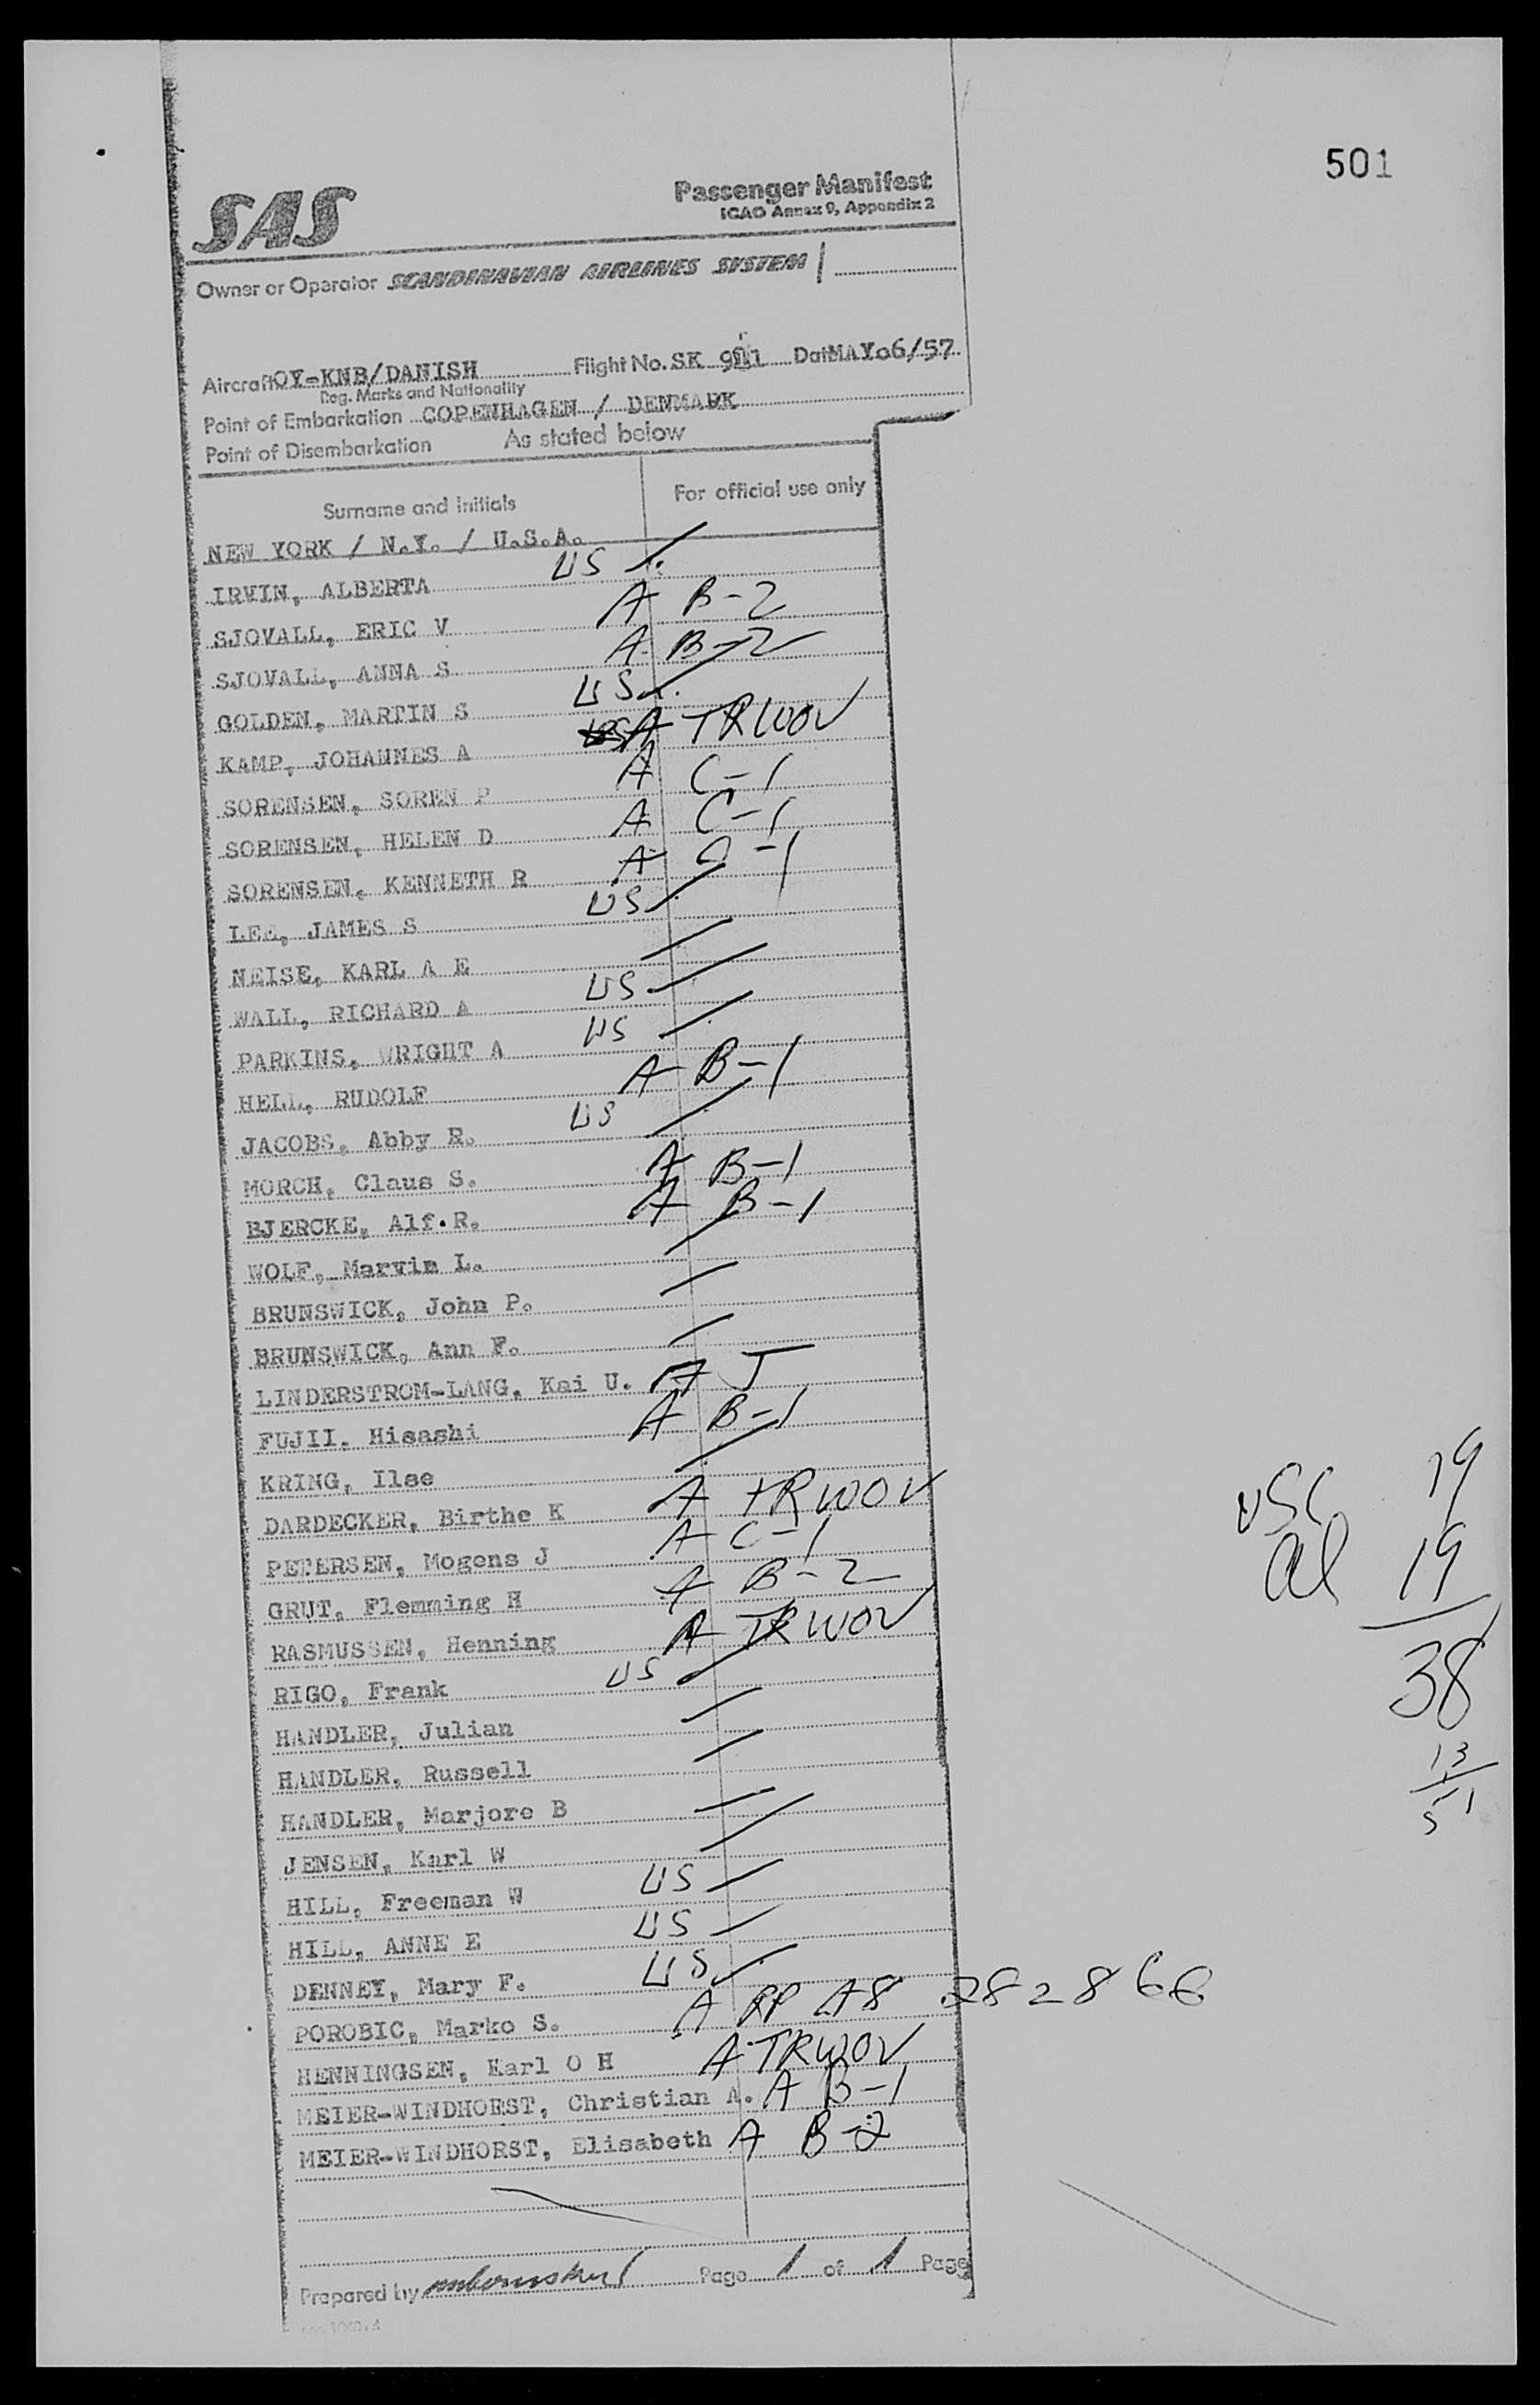 501
SAS
Passenger Manifest
ICAO Annex 9, Appendix 2
Owner or Operator SCANDINAVIAN AIRLINES SYSTEM
Aircraft OY-KNB/DANISH Flight No. SK Date MAY 06/57
Reg. Marks and Nationality
Point of Embarkation COPENHAGEN / DENMARK
Point of Disembarkation As stated below
Surname and initials For official use only
NEW YORK / N.Y. / U.S.A.
IRVIN, ALBERTA US
SJOVALL, ERIC V A B-2
SJOVALL, ANNA S A B-2
GOLDEN, MARTIN S US
KAMP, JOHANNES A A TRWOV
SORENSEN, SOREN P A C-1
SORENSEN, HELEN D A C-1
SORENSEN, KENNETH R A
LEE, JAMES S US
NEISE, KARL A E
WALL, RICHARD A US
PARKINS, WRIGHT A US
HELL, RUDOLF A B-1
JACOBS, Abby R. US
MORCH, Claus S. A B-1
BJERCKE, Alf.R. A B-1
WOLF, Marvin L.
BRUNSWICK, John P.
BRUNSWICK, Ann F.
LINDERSTROM-LANG, Kai U. A J
FUJII. Hisashi A B-1
KRING, Ilse
DARDECKER, Birthe K A TRWOV
PETERSEN, Mogens J A C-1
GRUT, Flemming H A B-2
RASMUSSEN, Henning A TRWOV
RIGO, Frank US
HANDLER, Julian
HANDLER, Russell
HANDLER, Marjore B
JENSEN, Karl W
HILL, Freeman W US
HILL, ANNE E US
DENNEY, Mary F. US
POROBIC, Marko S. A RP A8 282866
HENNINGSEN, Karl O H A TRWOV
MEIER-WINDHORST, Christian A. A B-1
MEIER-WINDHORST, Elisabeth A B-2
USC 19
al 19
38
13
51
Prepared by Page 1 of 1 Page